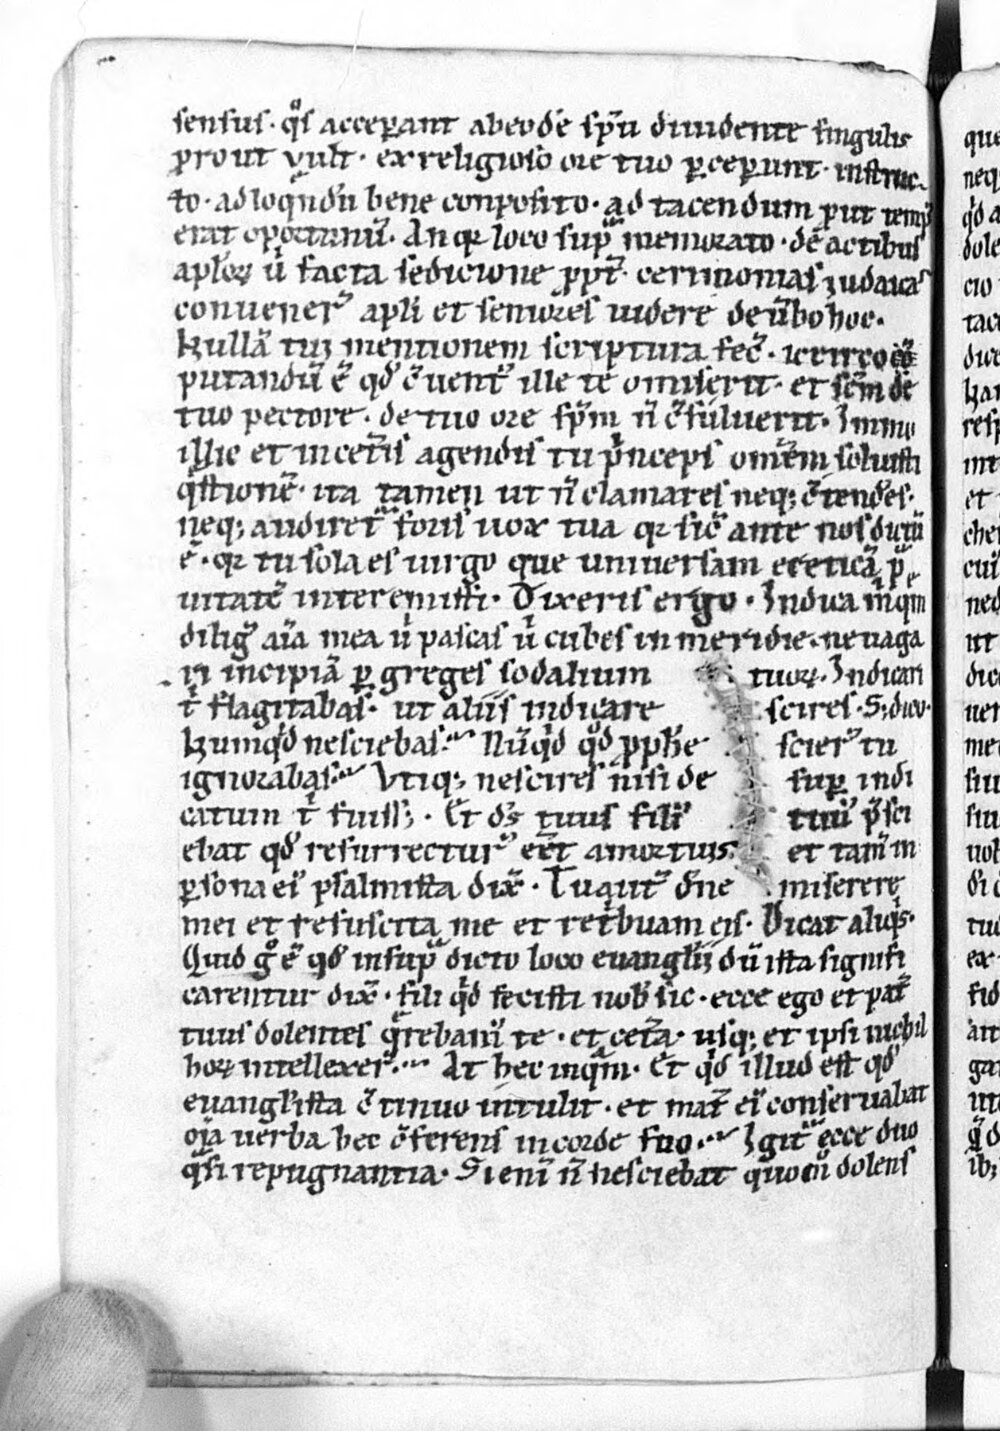 sensus · q̊s acceperant ab eodē sp̄u diuidente singulis
prout vult · ex religioso ore tuo ꝑceperunt · instruc-
to · ad loq̄ndū bene composito · ad tacendum ꝓut temp᷒
erat oportunū · An qꝛ loco sup̄ memorato · de actibus
apl̄oꝝ u̇ facta sedicione ꝓpt̄ · cerimonias iudaicas
convenerᷣ apl̄i et seniores uidere de ūbo hoc ·
Nullā tui mentionem scriptura fec̄ · iccirco cō
putandū ē qd̓ ꝯuentᷣ ille te omiserit · et sc̄m de
tuo pectore · de tuo ore sp̄m n̄ ꝯsuluerit · Immo
illic et in cet̄is agendis tu pͥnceps omēm soluisti
q̄stionē · ita tamen ut n̄ clamares neqꝫ ꝯtenderes ·
neqꝫ audiretᷣ foris uox tua qꝛ sic̄ ante nos dictū
ē · qꝛ tu sola es uirgo que uniuersam heresicā pͣ
uitatē interemisti · Dixeris ergo · Indica m̊ quē
diligᷣ aīa mea u̇ pascas u̇ cubes in meridie · ne uaga
ri incipiā ꝑ greges sodalium tuoꝝ · Indicari
t̊ flagitabas · ut aliis indicare scires · Si dico ·
Nunq̊d nesciebas · Nūq̊d qd̓ ꝓph̄e scierᷣ tu
ignorabas · Vtiqꝫ nescires nisi de sup̄ indi
catum t̊ fuissꝫ · Et ds̄ tuus filiᷣ tuus p̄sci
ebat qd̓ resurrecturᷣ eēt a mortuis · et tam̄ in
ꝑsona eiᷣ psalmista dix̄ · Tu aut̄ dn̄e miserere
mei et resuscita me et ret̊buam eis · Dicat aliqͥs ·
Quid g̊ ē qd̓ in sup̄ dicto loco euanglii dū ista signifi
carentur dix̄ · fili qͥd fecisti nob̄ sic · ecce ego et pat̄
tuus dolentes q̄rebamᷣ te · et cet̄a · usqꝫ et ipsi nichil
hoꝝ intellexerᷣ · At hec inqͣm · Et qͥd illud est qd̓
euanglista ꝯtinuo intulit · et mat̄ eiᷣ conseruabat
oīa uerba hec ꝯferens in corde suo · Igitᷣ ecce duo
qͣsi repugnantia · Si enī n̄ nesciebat quo cū dolens